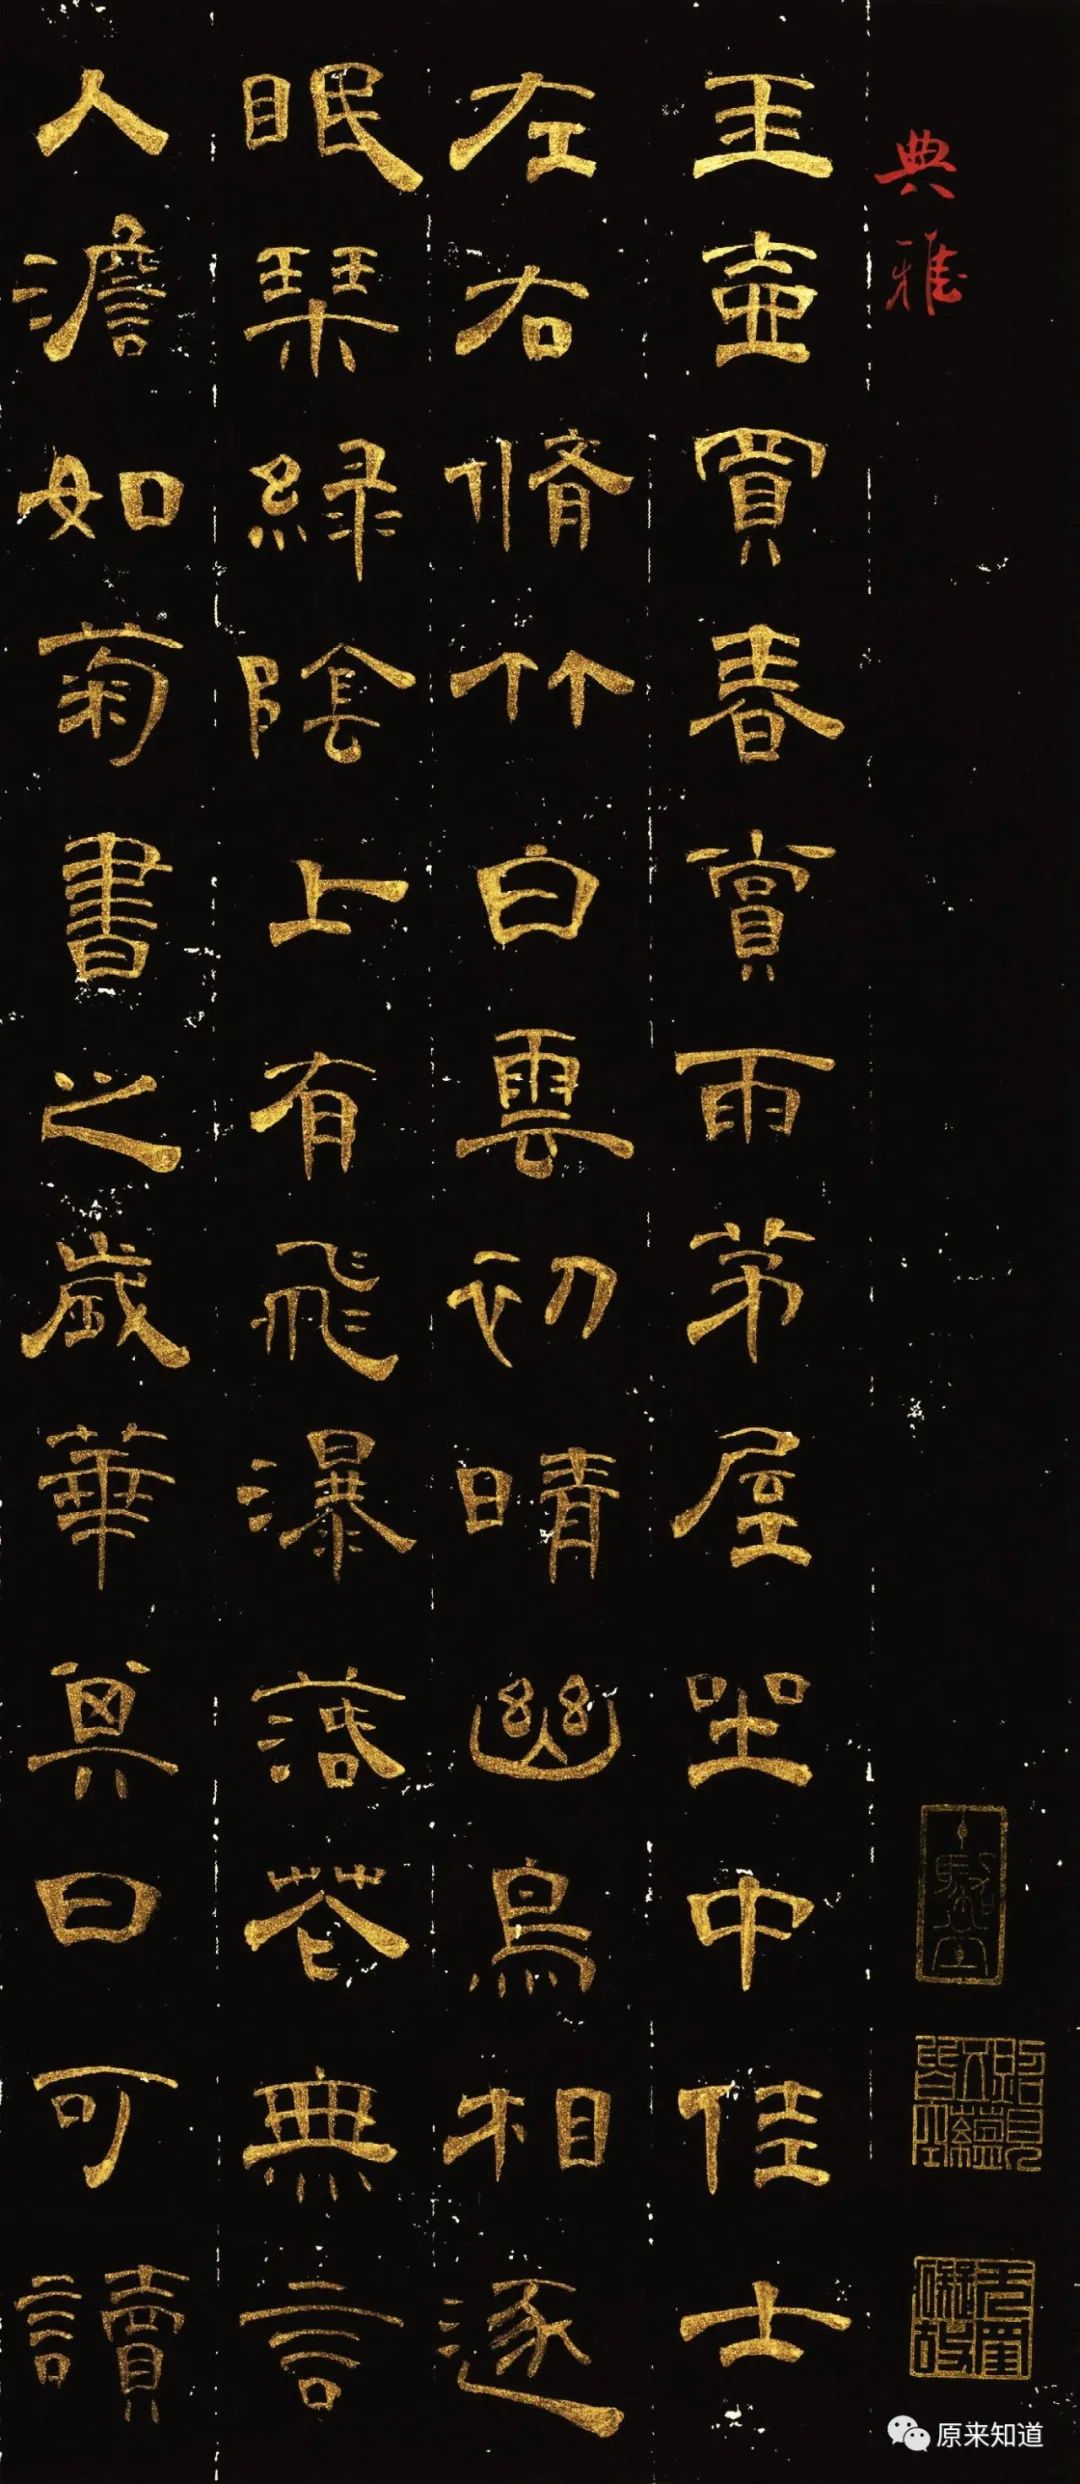 典雅
玉壺買春賞雨茅屋坐中佳士
左右脩竹白雲初晴幽鳥相逐
眠琹綠陰上有飛瀑落花無言
人澹如菊書之歲華其曰可讀
原来知道